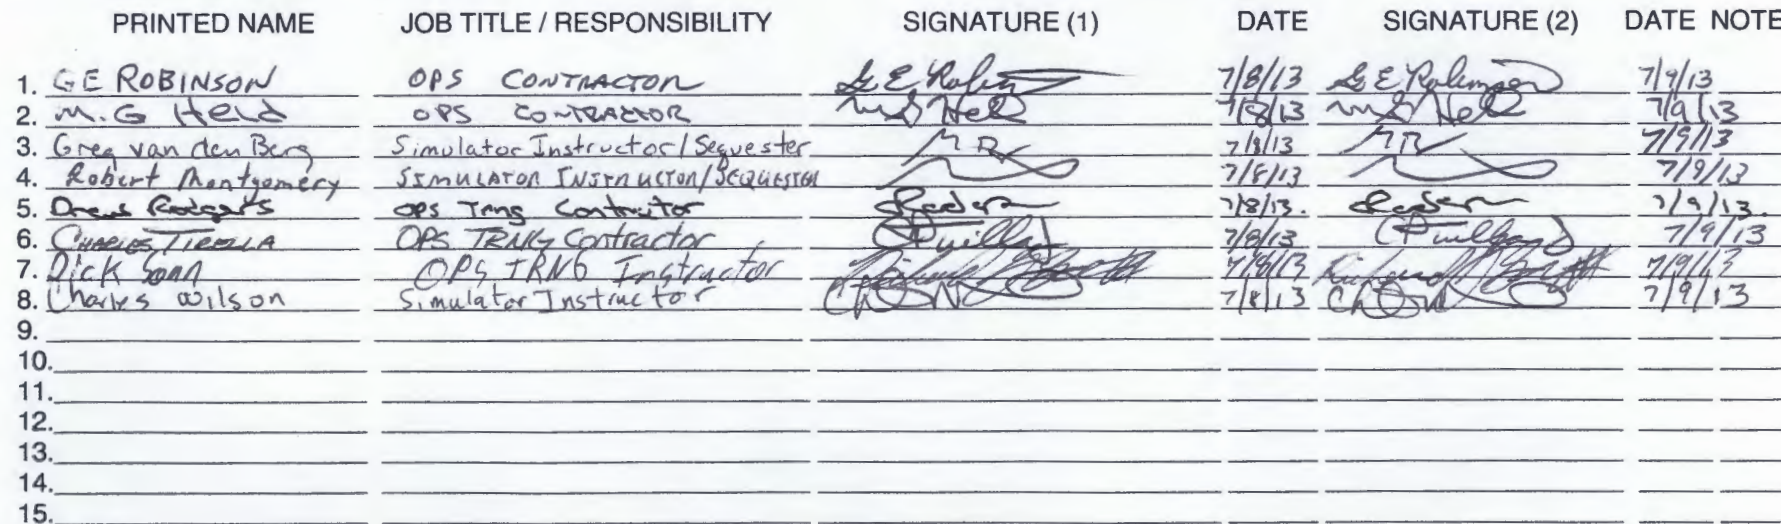 PRINTED NAME JOB TITLE / RESPONSIBILITY SIGNATURE (1) DATE SIGNATURE (2) DATE NOTE
1. GE ROBINSON OPS CONTRACTOR G E Robinson 7/8/13 G E Robinson 7/9/13
2. M.G Held OPS CONTRACTOR M G Held 7/8/13 M G Held 7/9/13
3. Greg van den Berg Simulator Instructor/Sequester 7/8/13 7/9/13
4. Robert Montgomery SIMULATOR INSTRUCTOR/SEQUESTER 7/8/13 7/9/13
5. Drew Rodgers OPS Trng Contractor 7/8/13. 7/9/13.
6. CHARLES OPS TRNG Contractor 7/8/13 7/9/13
7. Dick OPS TRNG Instructor 7/8/13 7/9/13
8. Charles Wilson Simulator Instructor 7/8/13 7/9/13
9.
10.
11.
12.
13.
14.
15.